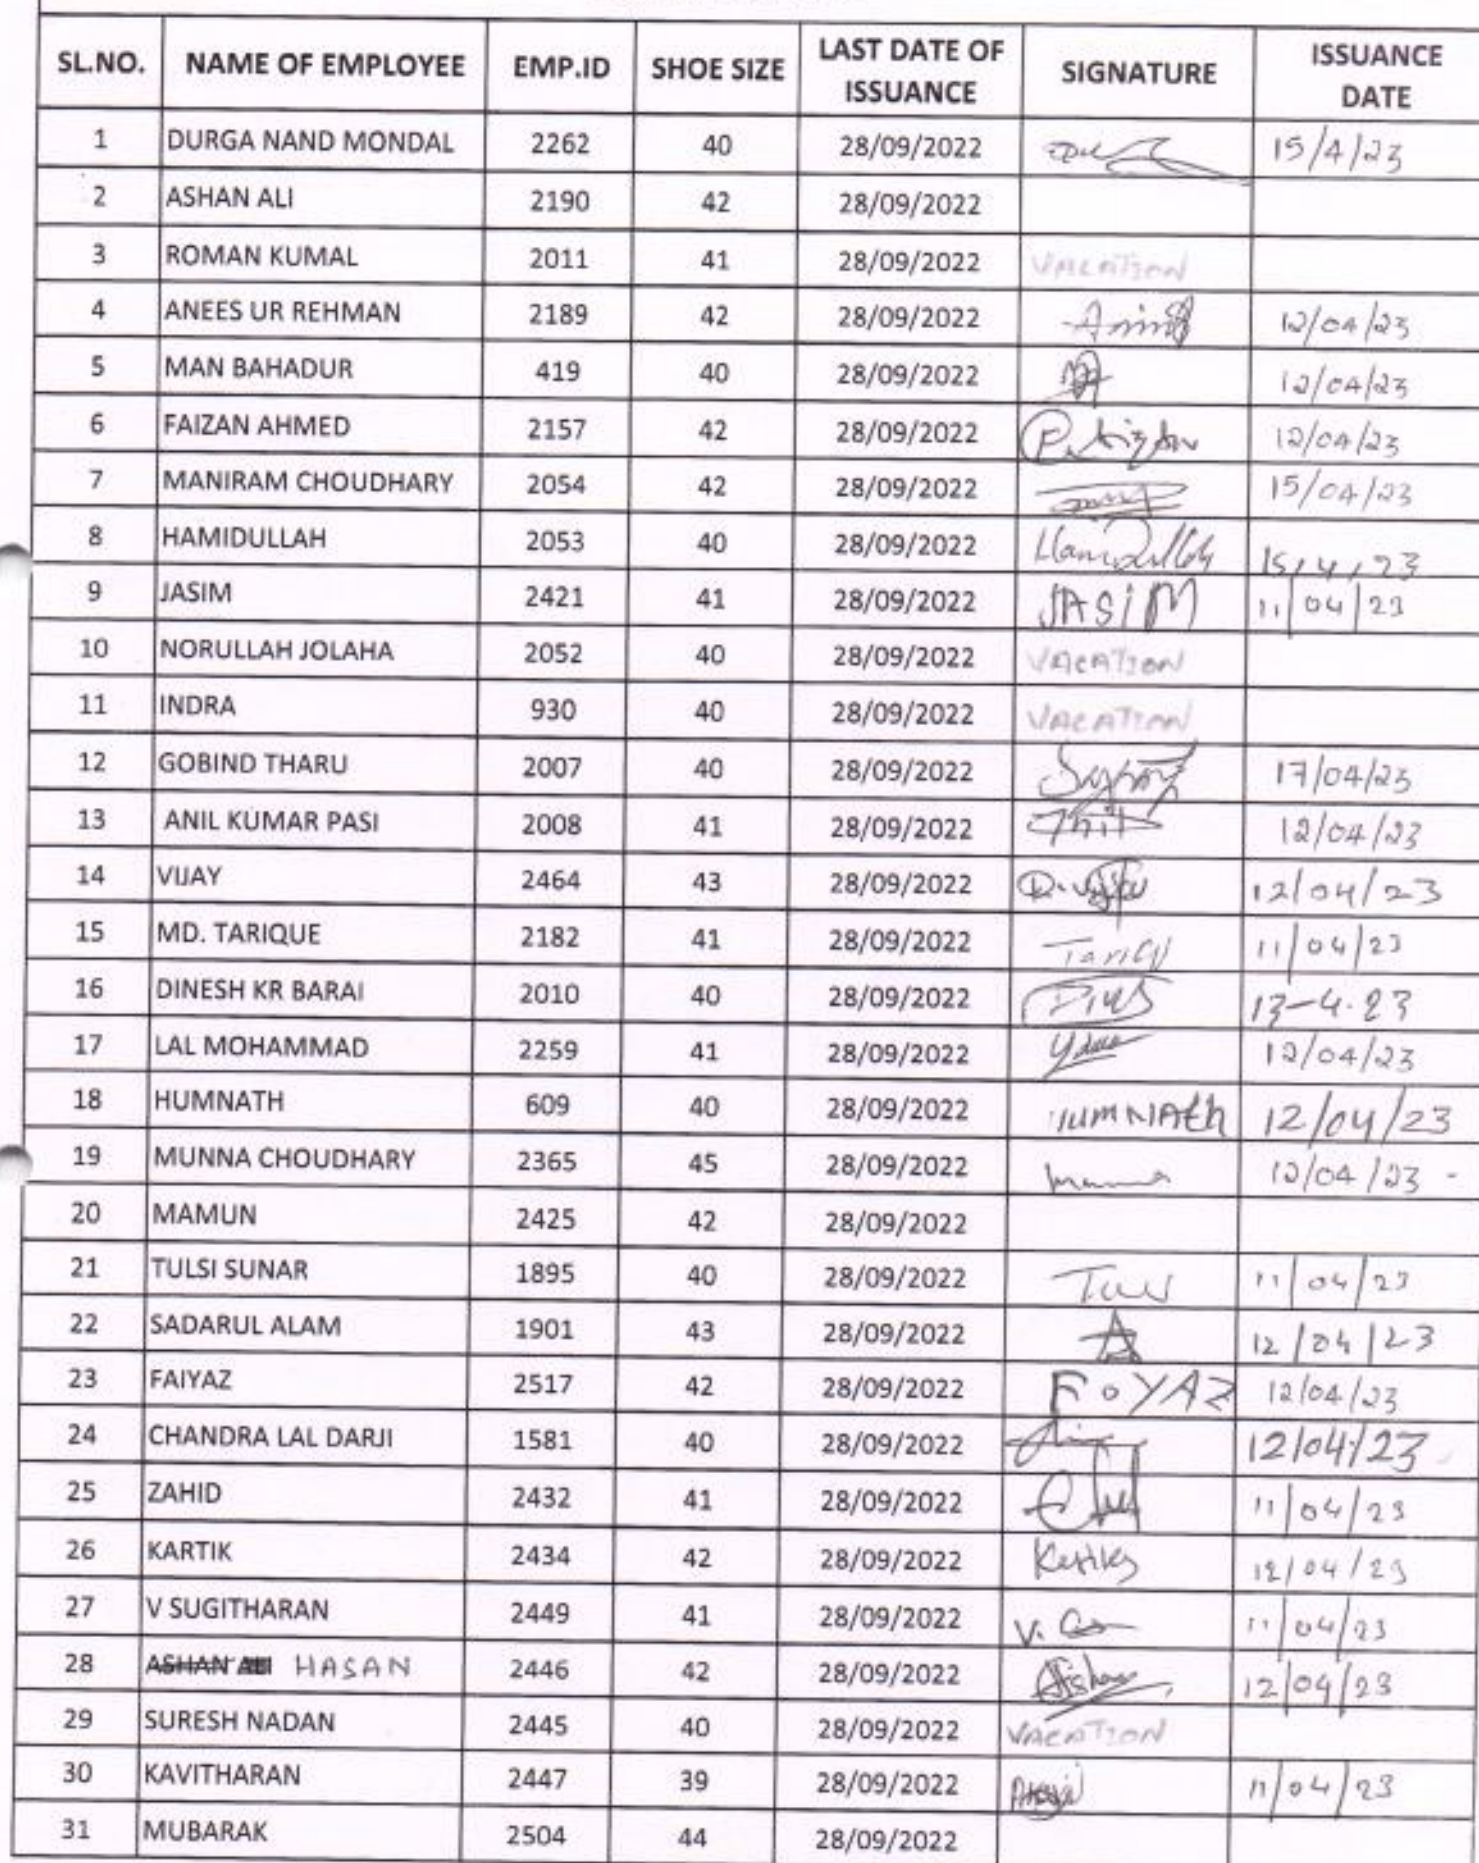 SL.NO. NAME OF EMPLOYEE EMP.ID SHOE SIZE LAST DATE OF ISSUANCE SIGNATURE ISSUANCE DATE
1 DURGA NAND MONDAL 2262 40 28/09/2022 15/4/23
2 ASHAN ALI 2190 42 28/09/2022
3 ROMAN KUMAL 2011 41 28/09/2022 VACATION
4 ANEES UR REHMAN 2189 42 28/09/2022 12/04/23
5 MAN BAHADUR 419 40 28/09/2022 12/04/23
6 FAIZAN AHMED 2157 42 28/09/2022 12/04/23
7 MANIRAM CHOUDHARY 2054 42 28/09/2022 15/04/23
8 HAMIDULLAH 2053 40 28/09/2022 Hamidullah 15/4/23
9 JASIM 2421 41 28/09/2022 JASIM 11/04/23
10 NORULLAH JOLAHA 2052 40 28/09/2022 VACATION
11 INDRA 930 40 28/09/2022 VACATION
12 GOBIND THARU 2007 40 28/09/2022 17/04/23
13 ANIL KUMAR PASI 2008 41 28/09/2022 12/04/23
14 VIJAY 2464 43 28/09/2022 12/04/23
15 MD. TARIQUE 2182 41 28/09/2022 11/04/23
16 DINESH KR BARAI 2010 40 28/09/2022 13-4-23
17 LAL MOHAMMAD 2259 41 28/09/2022 12/04/23
18 HUMNATH 609 40 28/09/2022 HUMNATH 12/04/23
19 MUNNA CHOUDHARY 2365 45 28/09/2022 12/04/23 -
20 MAMUN 2425 42 28/09/2022
21 TULSI SUNAR 1895 40 28/09/2022 11/04/23
22 SADARUL ALAM 1901 43 28/09/2022 12/04/23
23 FAIYAZ 2517 42 28/09/2022 FOYAZ 12/04/23
24 CHANDRA LAL DARJI 1581 40 28/09/2022 12/04/23
25 ZAHID 2432 41 28/09/2022 11/04/23
26 KARTIK 2434 42 28/09/2022 12/04/23
27 V SUGITHARAN 2449 41 28/09/2022 11/04/23
28 ASHAN ALI HASAN 2446 42 28/09/2022 12/04/23
29 SURESH NADAN 2445 40 28/09/2022 VACATION
30 KAVITHARAN 2447 39 28/09/2022 11/04/23
31 MUBARAK 2504 44 28/09/2022